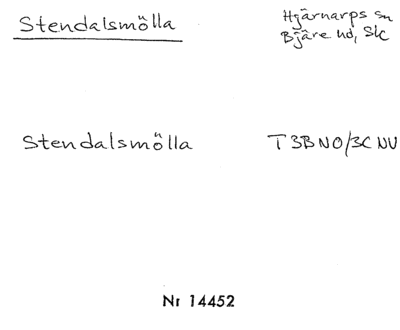 Stendalsmölla
Hjärnarps sn
Bjäre hd, Sk
Stendalsmölla
T 3B NO/3C NV
Nr 14452